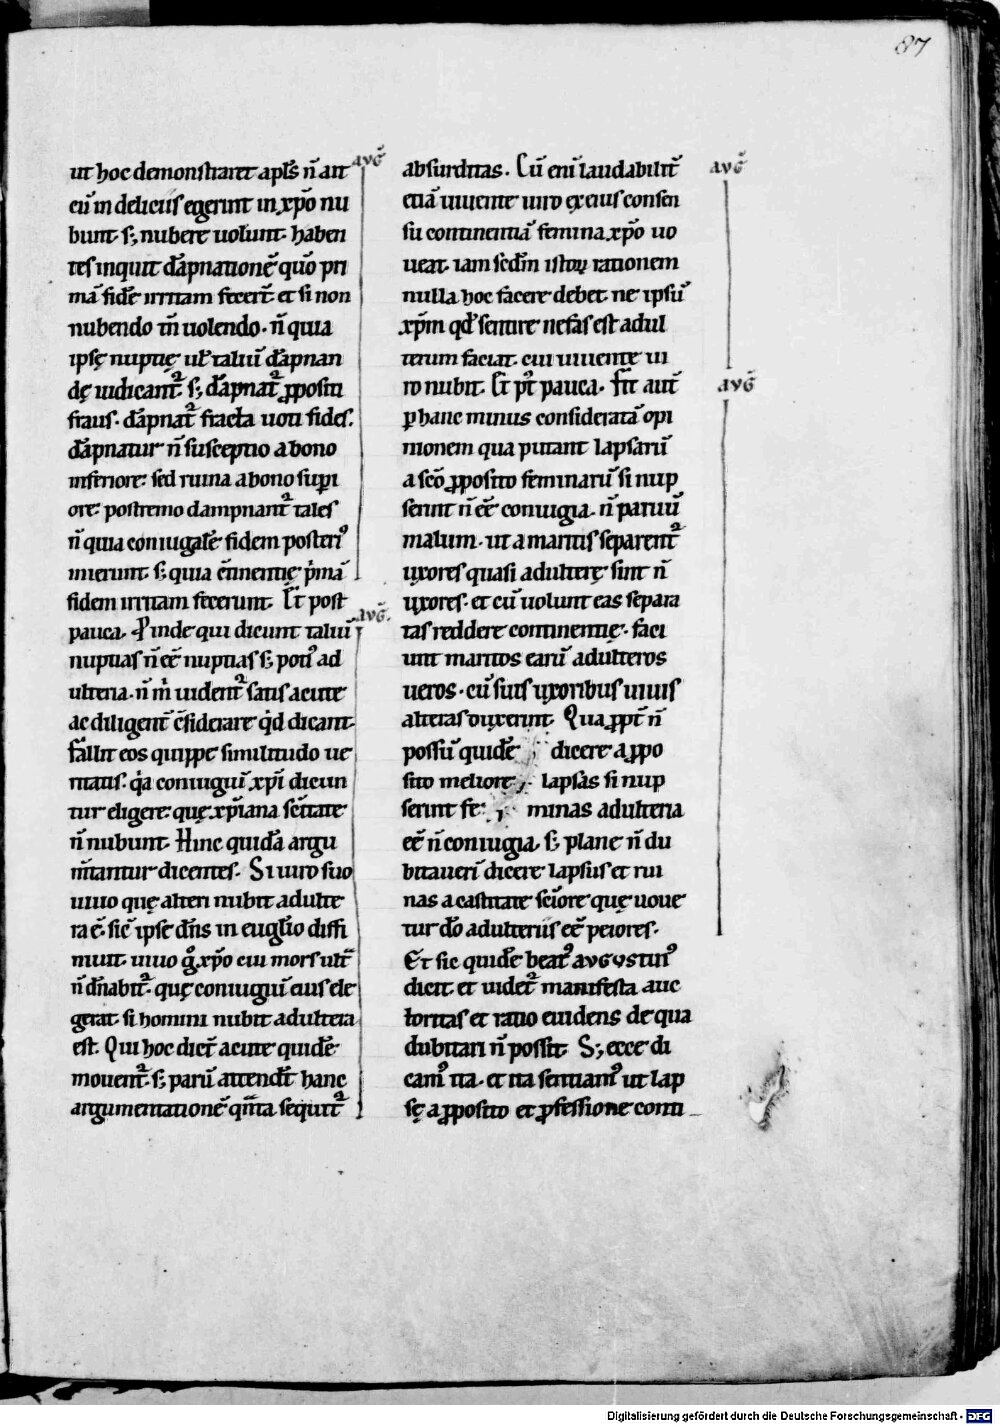 87
ut hoc demonstraret apl̄s n̄ ait avḡ
cū in deliciis egerint in xp̄o nu
bunt. s; nubere uolunt. haben
tes inquit dāpnationē quō pri
mā fidē irritam fecer̄t. et si non
nubendo tn̄ uolendo. n̄ quia
ipsę nuptię ul̄ taliū dāpnan
dę iudicant᷑. s; dāpnat᷑ ꝓpositi
fraus. dāpnat᷑ fracta uoti fides.
dāpnatur n̄ susceptio a bono
inferiore: sed ruina a bono supi̱
ore: postremo dampnant᷑ tales
n̄ quia coniugalē fidem posteriꝰ
inierunt. s; quia ɔ̄tinentię p̄mā
fidem irritam fecerunt. Et̄ post
pauca. Proinde qui dicunt taliū avḡ.
nuptias n̄ eē nuptias s; potiꝰ ad
ulteria. n̄ m̄ uident᷑ satis acute
ac diligent̄ ɔ̄siderare qd̄ dicant.
fallit eos quippe similitudo ue
ritatis. q̄a coniugiū xp̄i dicun
tur eligere: quę xp̄iana sc̄itate
n̄ nubunt. Hinc quidā argu
m̄tantur dicentes. Si uiro suo
uiuo quę alteri nubit adulte
ra ē. sic̄ ipse dn̄s in euglīo diffi
niuit. uiuo g̊ xp̄o cui mors ult̄
n̄ dn̄abit᷑. quę coniugiū eius ele
gerat. si homini nubit adultera
est. Qui hoc dict̄ acute quidē
mouent᷑. s; parū attendt̄ hanc
argumentationē qn̄ta sequit᷑
absurditas. Cū enī laudabilit̄ avḡ
etiā uiuente uiro ex eius consen
su continentiā femina xp̄o uo
ueat. iam scd̄m istoꝝ rationem
nulla hoc facere debet. ne ipsū
xp̄m qd̄ sentire nefas est adul
terum faciat. cui uiuente ui
ro nubit. Et̄ pt̄ pauca. Fit̄ aut̄ avḡ
ꝑ hanc minus consideratā opi
nionem qua putant lapsarū
a scō ꝓposito feminarū si nup
serint n̄ eē coniugia. n̄ paruū
malum. ut a maritis separent᷑
uxores quasi adulterę sint n̄
uxores. et cū uolunt eas separa
tas reddere continentię. faci
unt maritos earū adulteros
ueros. cū suis uxoribus uiuis
alteras duxerint. Qua ꝓpt̄ n̄
possū quidē dicere a ꝓpo
sito meliore lapsas si nup
serint fe: minas adulteria
eē n̄ coniugia. s; plane n̄ du
bitauerī dicere lapsus et rui
nas a castitate sc̄iore quę uoue
tur dō adulteriis eē peiores.
Et sic quidē beatꝰ avgvstinꝰ
dicit. et uidet᷑ manifesta auc
toritas et ratio euidens de qua
dubitari n̄ possit. S; ecce di
camꝰ ita. et ita sentiamꝰ ut lap
sę a ꝓposito et ꝓfessione conti
Digitalisierung gefördert durch die Deutsche Forschungsgemeinschaft - DFG